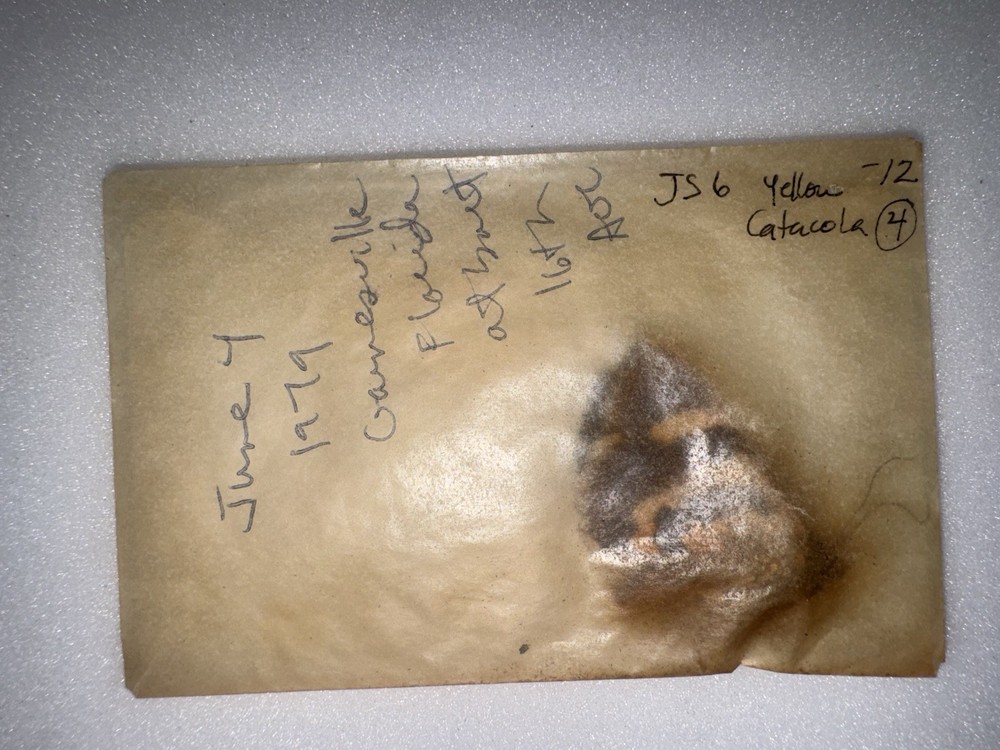 JS6 Yellow -12
Catacola 4
June 4
1979
Gainesville
Florida
at bait
16th
Ave